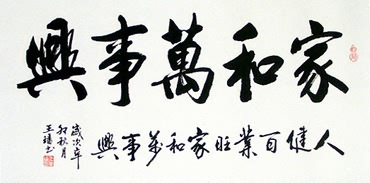 家和萬事興
人健百業旺家和萬事興
歲次辛
卯秋月
王 书